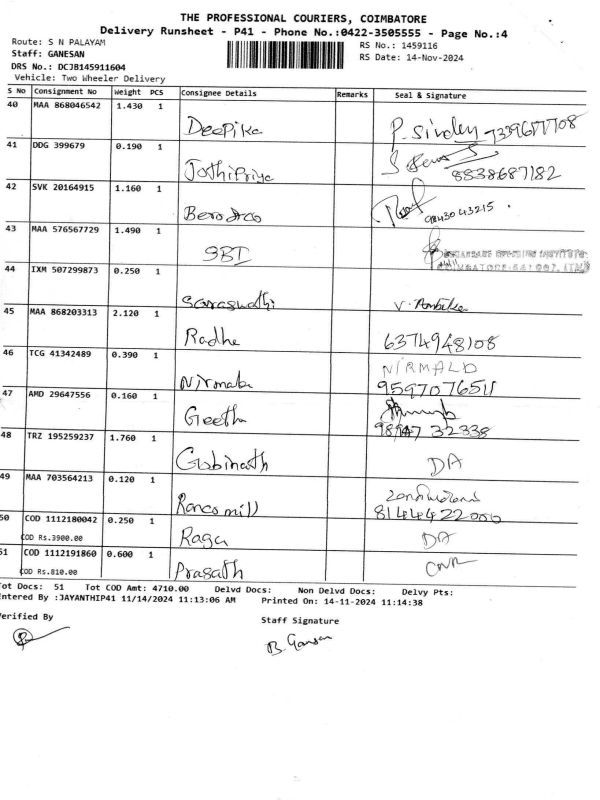 THE PROFESSIONAL COURIERS, COIMBATORE
Delivery Runsheet - P41 - Phone No.:0422-3505555 - Page No.:4
Route: S N PALAYAM
Staff: GANESAN
DRS No.: DCJB145911604
Vehicle: Two Wheeler Delivery
RS No.: 1459116
RS Date: 14-Nov-2024
S No Consignment No Weight PCS Consignee Details Remarks Seal & Signature
40 MAA 868046542 1.430 1 Deepika 7339677708
41 DDG 399679 0.190 1 JothiPriya 8838687182
42 SVK 20164915 1.160 1 9843043215
43 MAA 576567729 1.490 1 SBI
44 IXM 507299873 0.250 1 Saraswathi V. Ambika
45 MAA 868203313 2.120 1 Radha 6374948108
46 TCG 41342489 0.390 1 Nirmala NIRMALD
9597076511
47 AMD 29647556 0.160 1 Geetha
32338
48 TRZ 195259237 1.760 1 Gobinath DA
49 MAA 703564213 0.120 1 Ranco mill
8144422000
50 COD 1112180042 0.250 1 Raga DA
COD Rs.3900.00
51 COD 1112191860 0.600 1 Prasath
COD Rs.810.00
Tot Docs: 51 Tot COD Amt: 4710.00 Delvd Docs: Non Delvd Docs: Delvy Pts:
Entered By :JAYANTHIP41 11/14/2024 11:13:06 AM Printed On: 14-11-2024 11:14:38
Verified By
Staff Signature